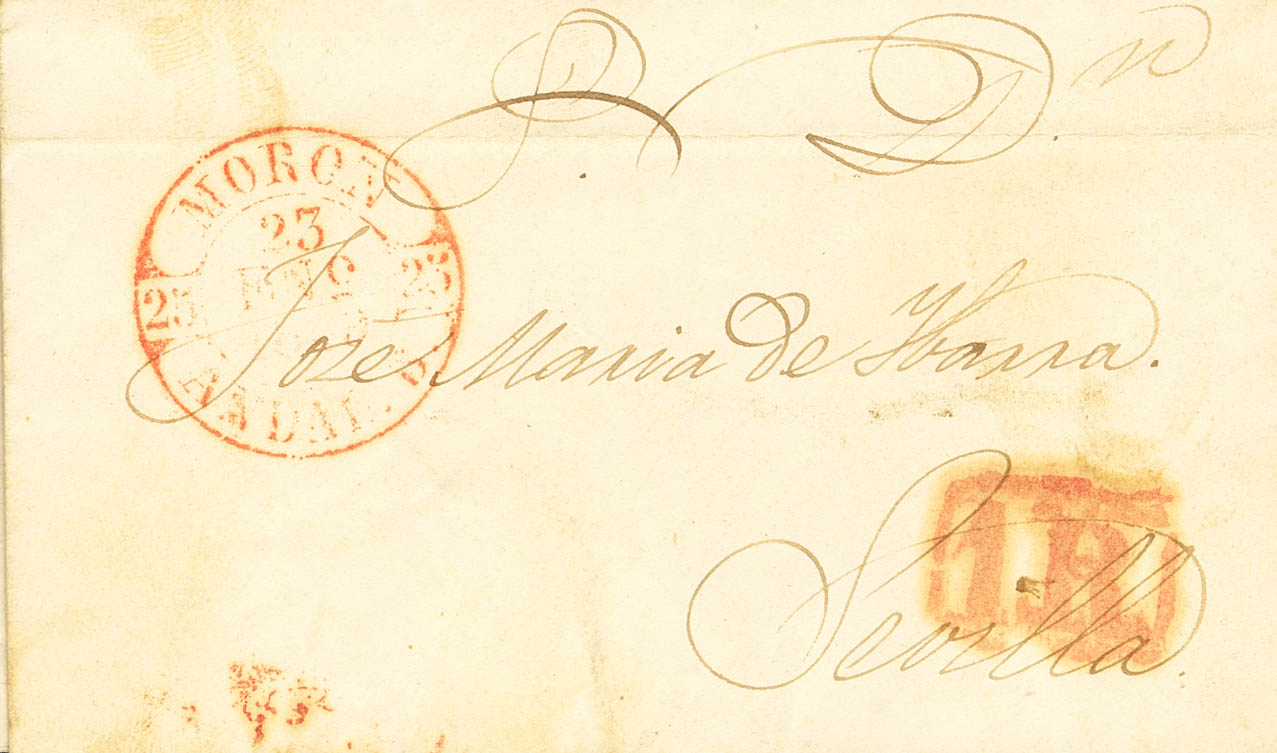 S. Dn.
MORON
23
ENO
25
25
ANDAL. B
Jose Maria de Ybarra.
1R
Sevilla.